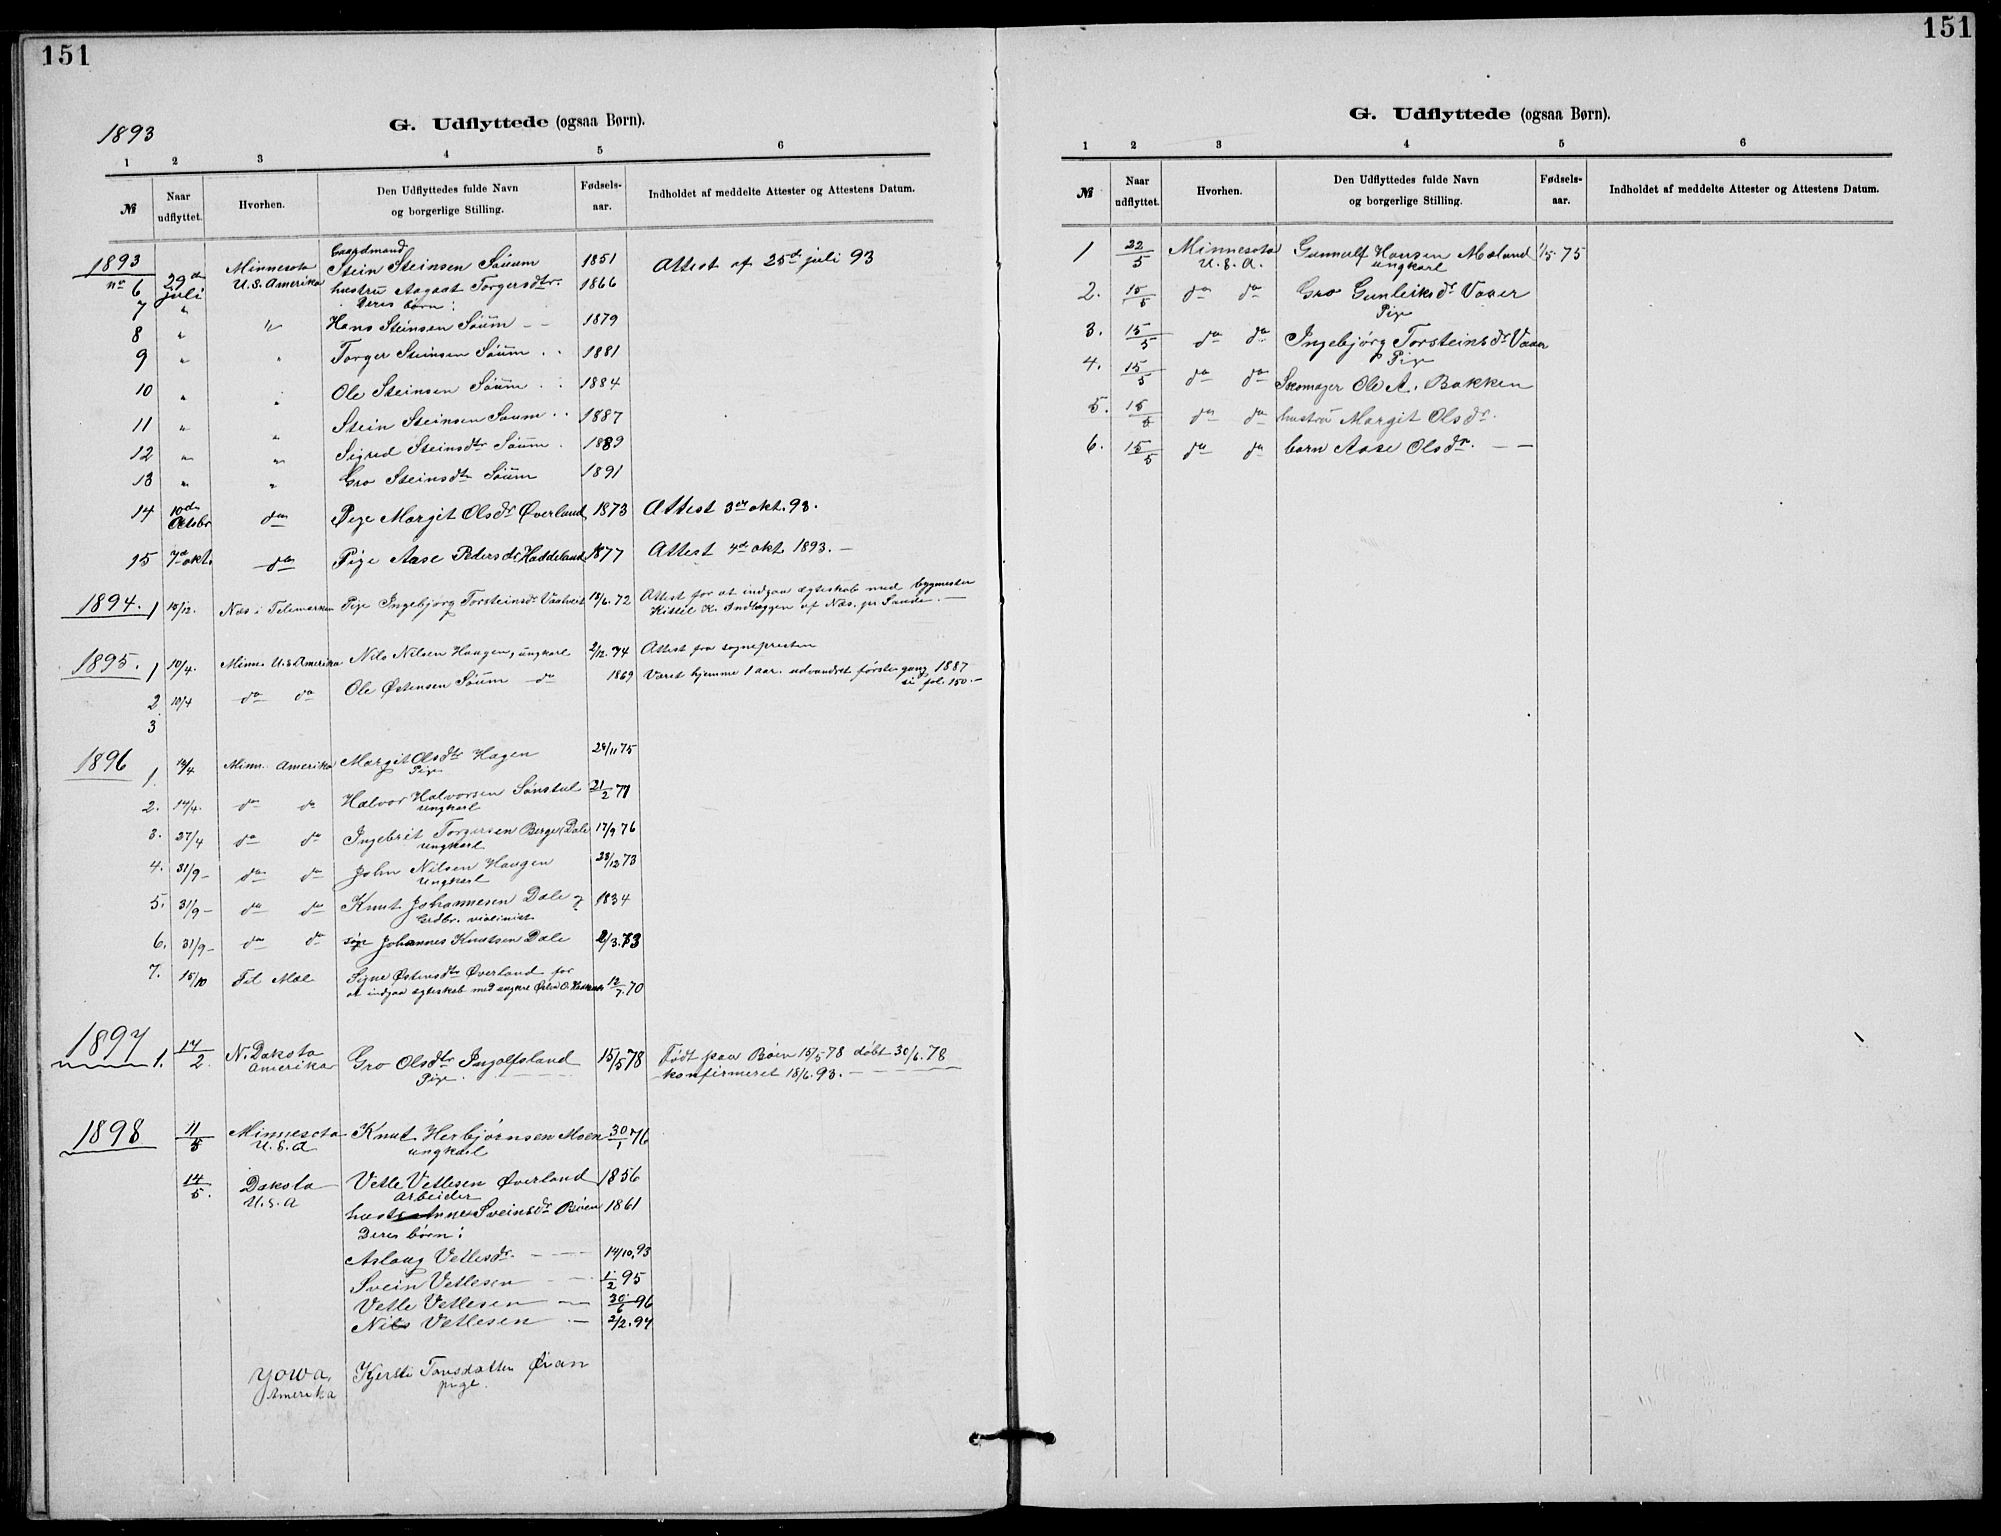 151
1893
G. Udflyttede (ogsaa Børn).
1 2 3 4 5 6
№ Naar udflyttet. Hvorhen. Den Udflyttedes fulde Navn og borgerlige Stilling. Fødsels-aar. Indholdet af meddelte Attester og Attestens Datum.
Gaardmand
1893 no 6 29de juli Minnesota U.S. Amerika Stein Steinsen Söum 1851 Attest af 25de juli 93
7 " hustru Aagaat Torgersdtr. 1866
Deres børn:
8 " " Hans Steinsen Söum - - 1879
9 " " Torger Steinsen Söum . . 1881
10 " " Ole Steinsen Söum . . 1884
11 " " Stein Steinsen Söum . . 1887
12 " " Sigrid Steinsdtr Söum . 1889
13 " " Gro Steinsdtr Söum 1891
14 10de Oktbr do Pige Margit Olsdr Øverland 1873 Attest 3de okt. 93.
15 7de okt. do Pige Aase Pedersdr Haddeland 1877 Attest 4de okt 1893. -
1894. 1 15/12. Næs i Telemarken Pige Ingebjörg Torsteinsdr Vaatveit 13/6. 72 Attest for at indgaa ægteskab med bygmester
Kittil K. Indlæggen af Næs. pr Sande. -
1895. 1 10/4. Minn. U.S. Amerika Nils Nilsen Haugen, ungkarl 2/12. 74 Attest fra sognepresten
2 10/4 do do Ole Østensen Söum do 1869 Været hjemme 1 aar. udvandret förste gang 1887
se fol. 150. -
3
1896 1. 14/4 Minn. Amerika Margit Olsdtr Hagen 28/11 75
Pige
2. 14/4. do do Halvor Halvorsen Sönstul 21/2 71
ungkarl
3. 27/4 do do Ingebrit Torgersen Berge/Dale 17/9 76
ungkarl
4. 31/9 - do do John Nilsen Haugen 28/12 73
ungkarl
5. 31/9 - do do Knut Johannesen Dale og 1834
Grdbr. violinist
6. 31/9 - do do søn Johannes Knutsen Dale 2/3. 73
7. 15/10 Til Mæl Signe Østensdtr Øverland for 12/7. 70
at indgaa ægteskab med ungkrl Østen O.
1897 1. 17/2 N. Dakota Amerika Gro Olsdtr Ingolfsland 15/5 78 Född paa Böen 15/5 78 döbt 30/6. 78
Pige. konfirmeret 18/6. 93. -
1898 11/5 Minnesota U.S.A Knut Herbjørnsen Moen 30/1 76
ungkarl
14/5. Dakota U.S.A Vetle Vetlesen Øverland 1856
Arbeider
hust. Anne Sveinsdr Böen 1861
Deres børn:
Aslaug Vetlesdr. - - - 14/10. 93
Svein Vetlesen - - 1/2 95
Vetle Vetlesen - 30/6 96
Nils Vetlesen - 2/2. 94
Yowa, Amerika Kjersti Tovsdatter Øian
pige.
151
G. Udflyttede (ogsaa Børn).
1 2 3 4 5 6
№ Naar udflyttet. Hvorhen. Den Udflyttedes fulde Navn og borgerlige Stilling. Fødsels-aar. Indholdet af meddelte Attester og Attestens Datum.
1 22/5 Minnesota U.S.A. Gunnulf Hansen Mæland 1/5. 75
ungkarl
2. 15/5 do do Gro Gunleiksdr Vaaer
Pige
3. 15/5 do do Ingebjörg Torsteinsdr Vaaer
Pige
4. 15/5 do do Skomager Ole A. Bakken
5. 15/5 do do hustru Margit Olsdr.
6. 15/5 do do barn Aase Olsdr. - -